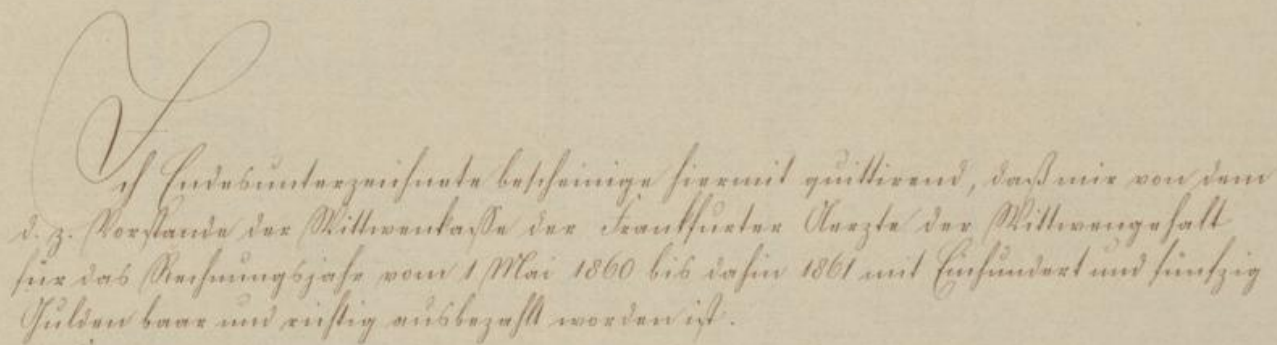 Ich Endesunterzeichnete bescheinige hiermit quittirend, daß mir von dem
d. z. Vorstande der Wittwenkasse der Frankfurter Aerzte der Wittwengehalt
für das Rechnungsjahr vom 1 Mai 1860 bis dahin 1861 mit Einhundert und fünfzig
Gulden baar und richtig ausbezahlt worden ist.